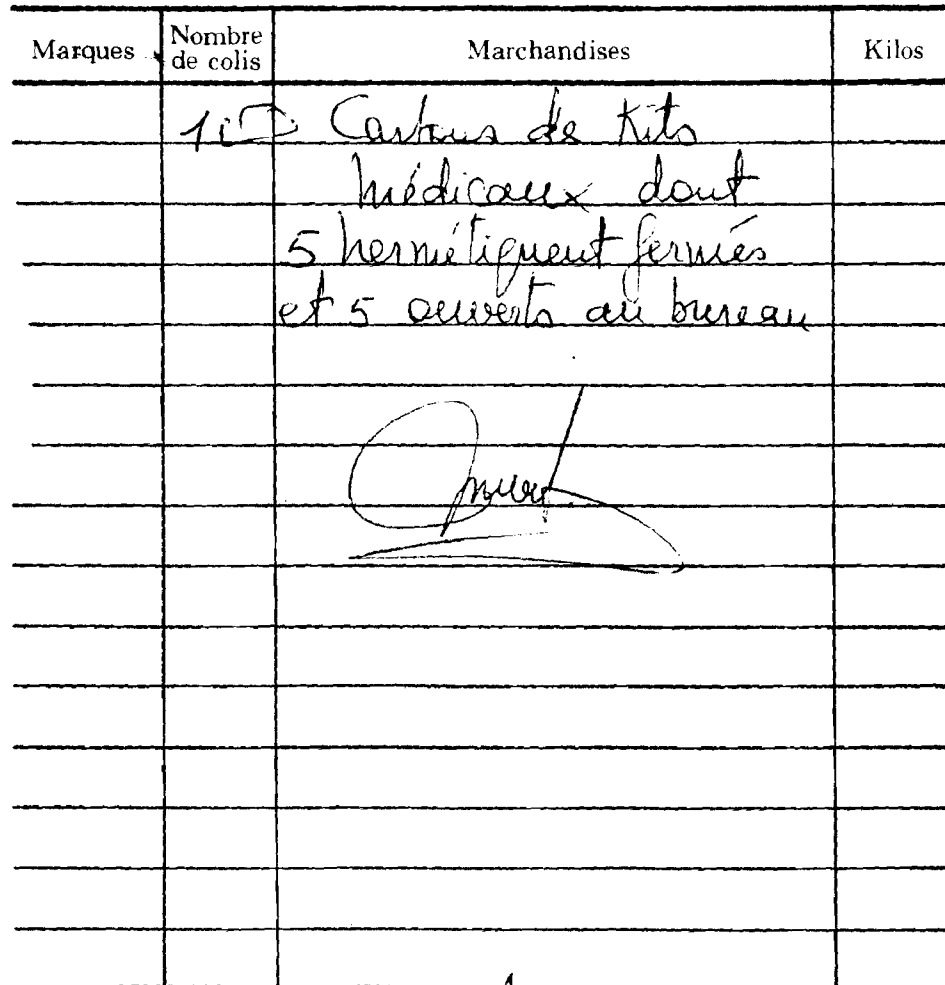 Marques Nombre de colis Marchandises Kilos
10 Cartons de Kits
Médicaux dont
5 hermétiquent fermés
et 5 ouverts au bureau